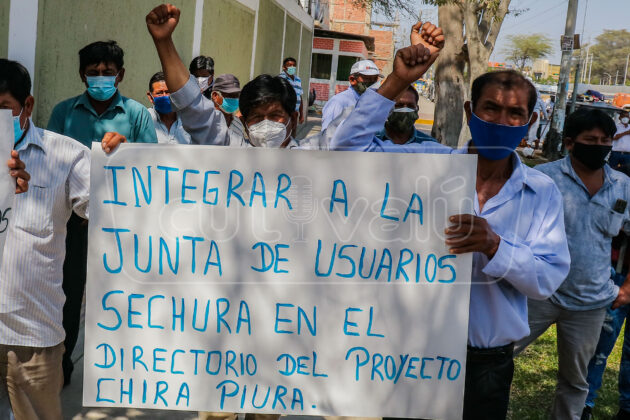 INTEGRAR A LA
JUNTA DE USUARIOS
SECHURA EN EL
DIRECTORIO DEL PROYECTO
CHIRA PIURA.
cutivalú